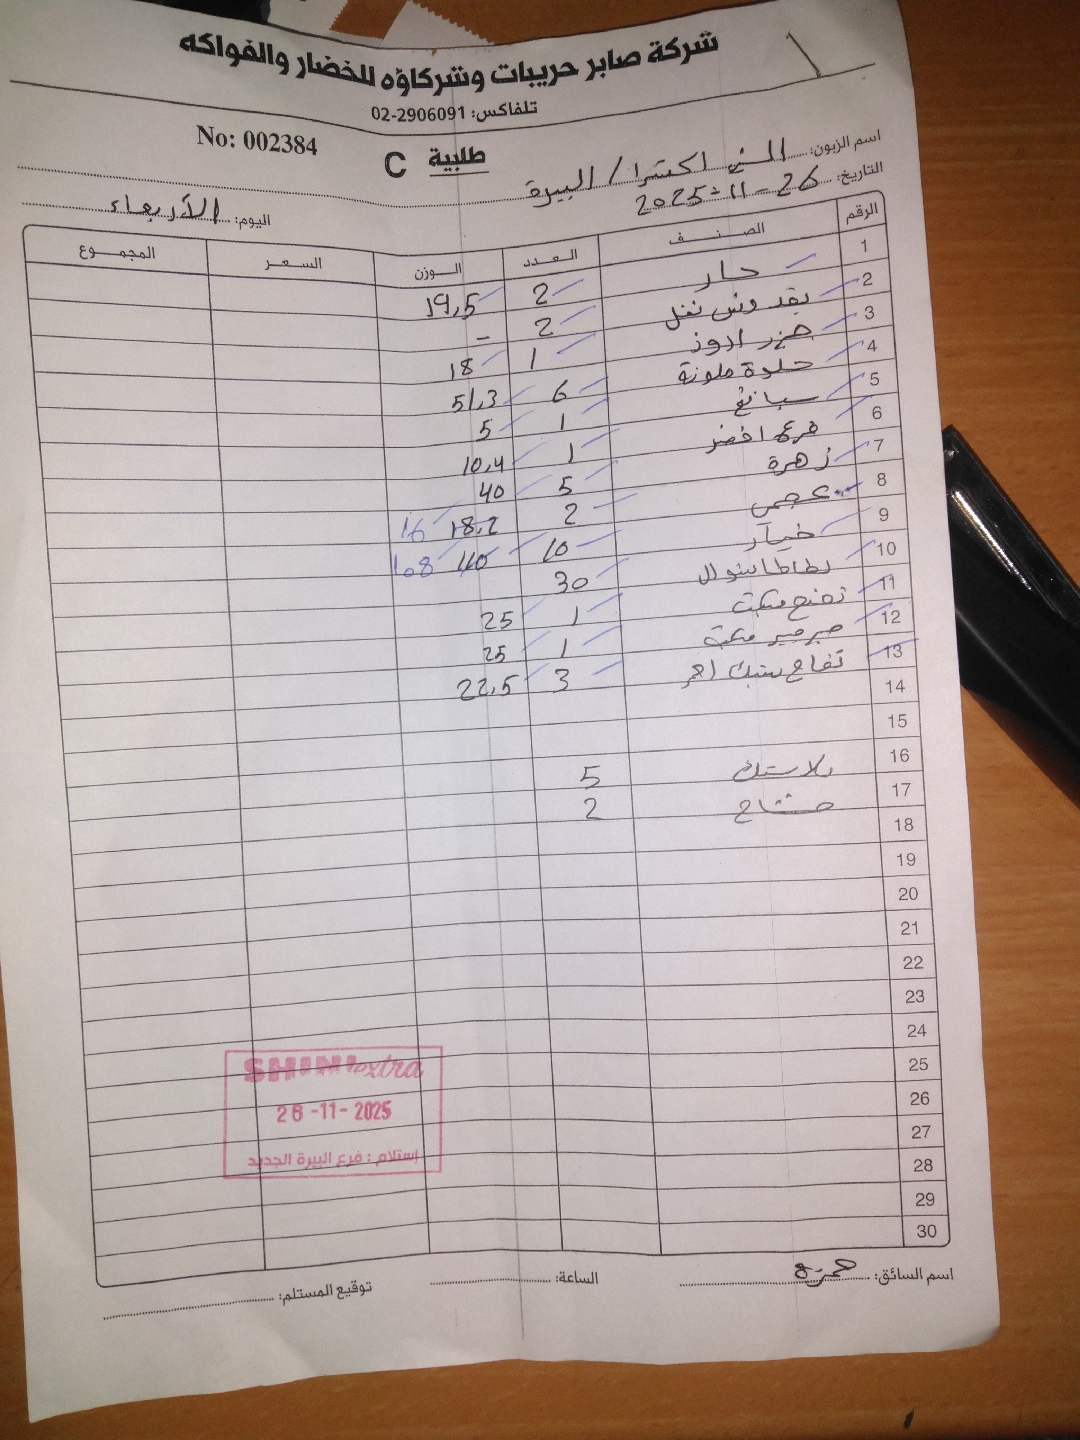 شركة صابر حريبات وشركاؤه للخضار والفواكه
تلفاكس: 02-2906091
No: 002384
طلبية C
اسم الزبون: الشني اكسترا / البيرة
التاريخ: 26-11-2025
اليوم: الأربعاء
الرقم الصنف العدد الوزن السعر المجموع
1 حار 2 19,5
2 بقدونس نغل 2 -
3 جزر اروز 1 18
4 حلوة ملونة 6 51,3
5 سبانخ 1 5
6 قرع اخضر 1 10,4
7 زهرة 5 40
8 عجمي 2 18,2 16
9 خيار 10 110 108
10 بطاطا 30
11 1 25
12 1 25
13 تفاح احمر 3 22,5
14
15
16 بلاستك 5
17 مشتاح 2
18
19
20
21
22
23
24
25
26
27
28
29
30
SHINI extra
26-11-2025
إستلام: فرع البيرة الجديد
اسم السائق: حمزة
الساعة:
توقيع المستلم: